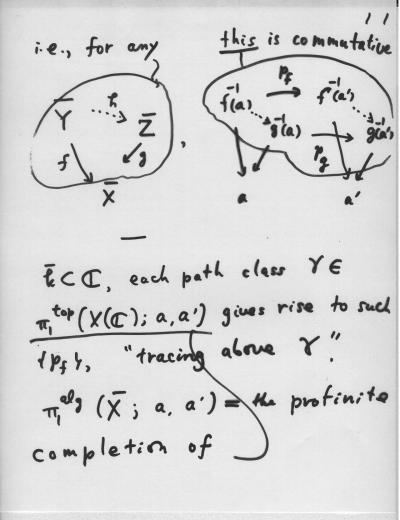 11
i.e., for any
this is commutative
Ȳ h Z̄
f g
X̄
,
p_f
f⁻¹(a) f⁻¹(a')
g⁻¹(a) g⁻¹(a')
p_g
a a'
k̄ ⊂ ℂ, each path class γ ∈
π₁^top (X(ℂ); a, a') gives rise to such
{p_f}, "tracing above γ".
π₁^alg (X̄; a, a') = the profinite
completion of